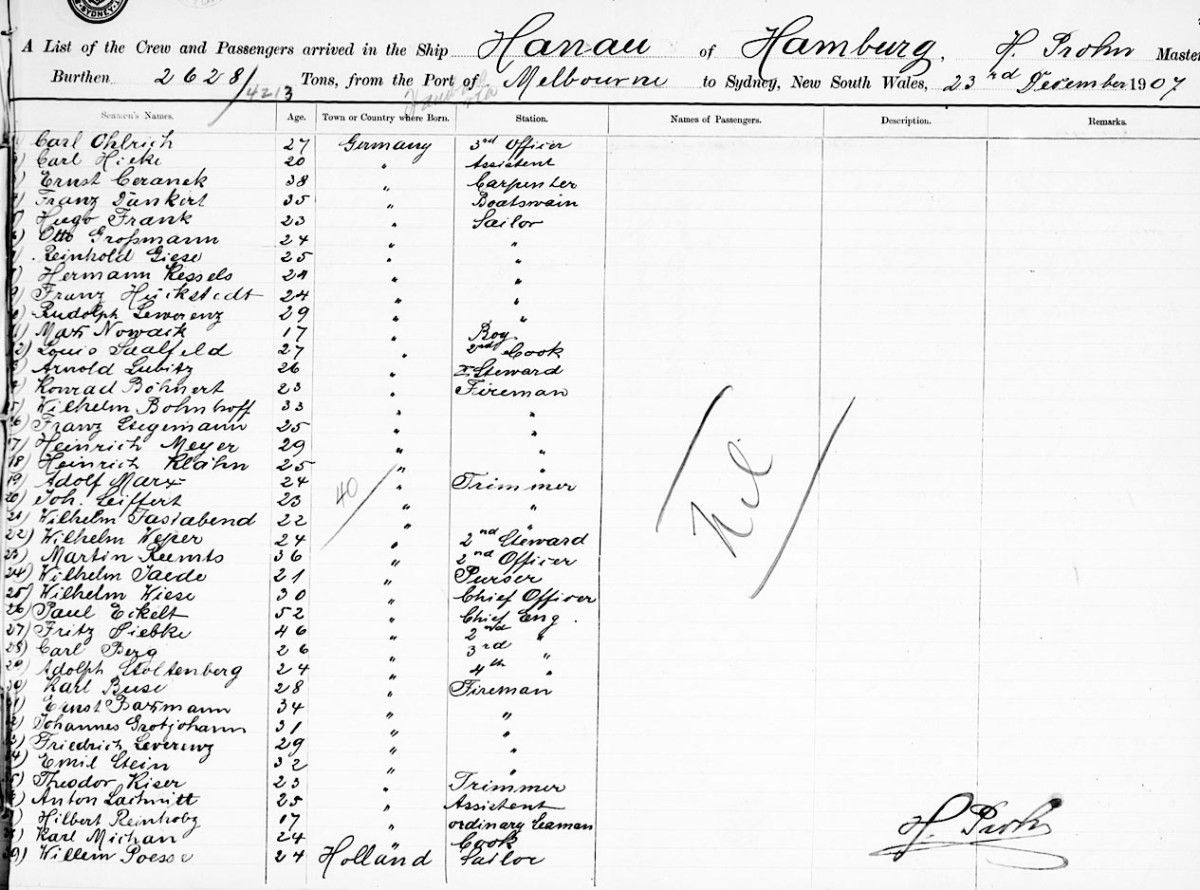 SYDNEY
A List of the Crew and Passengers arrived in the Ship Hanau of Hamburg, H. Prohn Master
Burthen 2628/4213 Tons, from the Port of Melbourne to Sydney, New South Wales, 23rd December 1907
Seamen's Names. Age. Town or Country where Born. Station. Names of Passengers. Description. Remarks.
Carl Ohlrich 27 Germany 3rd Officer
Carl Hieke 20 " Assistent
Ernst Ceranek 38 " Carpenter
Franz Dankert 35 " Boatswain
Hugo Frank 23 " Sailor
Otto Großmann 24 " "
Reinhold Giese 25 " "
Hermann Kessels 24 " "
Franz Hückstedt 24 " "
Rudolph Leworenz 29 " "
Max Nowack 17 " Boy.
12) Louis Saalfeld 27 " 2nd Cook
Arnold Lubitz 26 " Steward
Konrad Böhnert 23 " Fireman
Wilhelm Bohnhoff 33 " "
16) Franz Stegemann 25 " "
17) Heinrich Meyer 29 " "
18) Heinrich Klähn 25 " "
19) Adolf Marx 24 " Trimmer
20) Joh. Seiffert 23 " "
21) Wilhelm Fastabend 22 " "
22) Wilhelm Weper 24 " 2nd Steward
23) Martin Reemts 36 " 2nd Officer
24) Wilhelm Jaede 21 " Purser
25) Wilhelm Wiese 30 " Chief Officer
26) Paul Eckelt 52 " Chief Eng.
27) Fritz Siebke 46 " 2nd "
28) Carl Berg 26 " 3rd "
29) Adolph Stoltenberg 24 " 4th "
30) Karl Buse 28 " Fireman
31) Ernst Baxmann 34 " "
Johannes Grotjohann 31 " "
Friedrich Leverenz 29 " "
Emil Stein 32 " "
Theodor Kiser 23 " Trimmer
Anton Lachnitt 25 " Assistent
Hilbert Reinhobz 17 " ordinary Seaman
Karl Michan 24 " Cook
Willem Poesse 24 Holland Sailor
40
Nil
H. Prohn